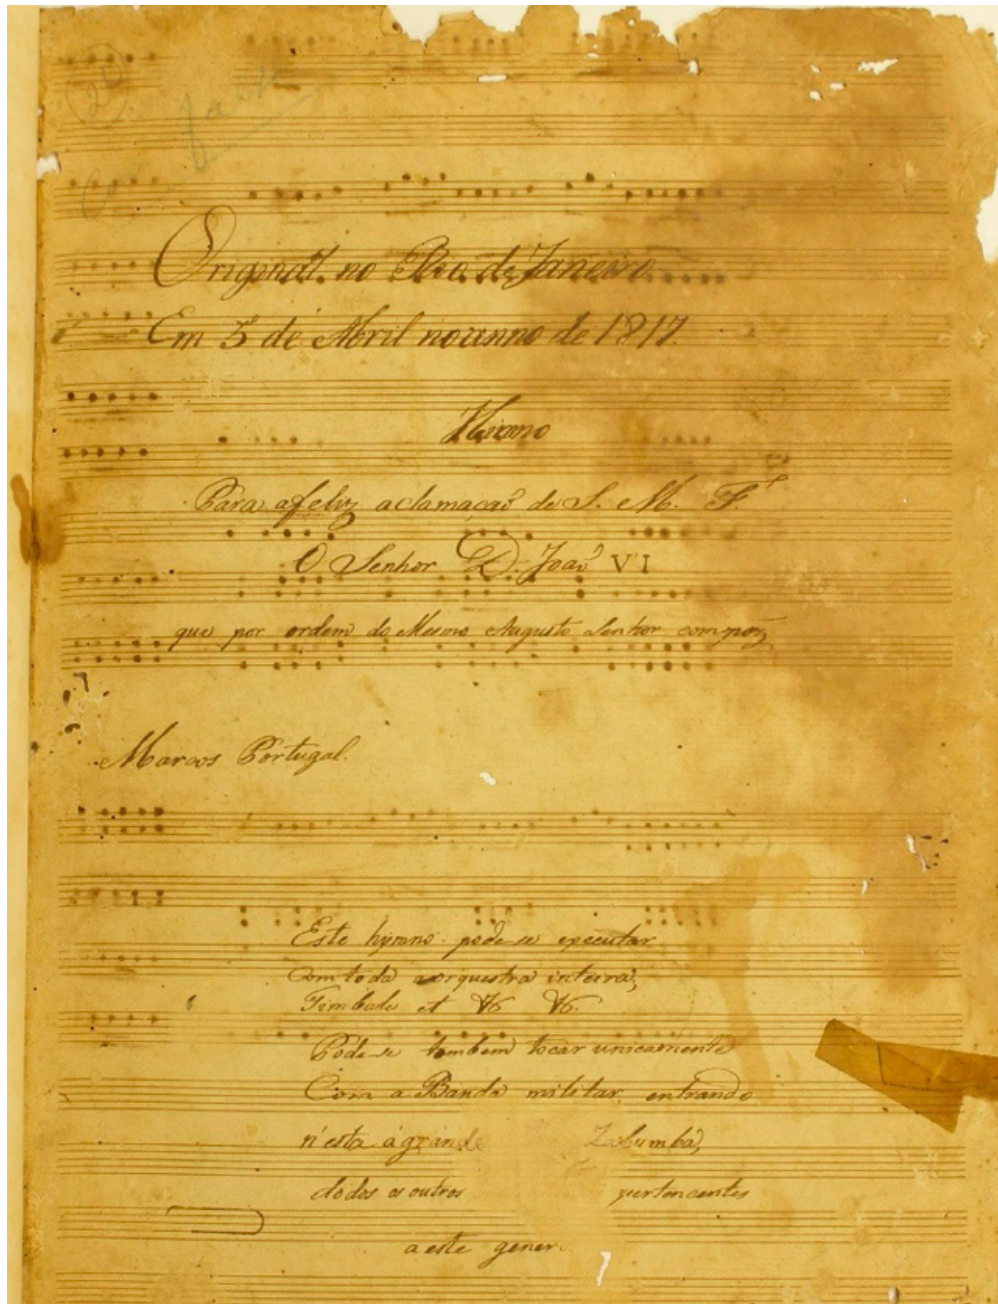 Original no Rio de Janeiro
Em 5 de Abril no anno de 1817.
Hÿmno
Para a feliz aclamaçaõ de S. M. F.
O Senhor D. Joaõ VI
que por ordem do Mesmo Augusto Senhor compoz
Marcos Portugal.
Este hymno pode-se executar
com toda a orquestra inteira,
Timbale et
Pode-se tambem tocar unicamente
Com a Banda militar, entrando
n'esta a grande Zabumba,
os outros pertencentes
a este gener